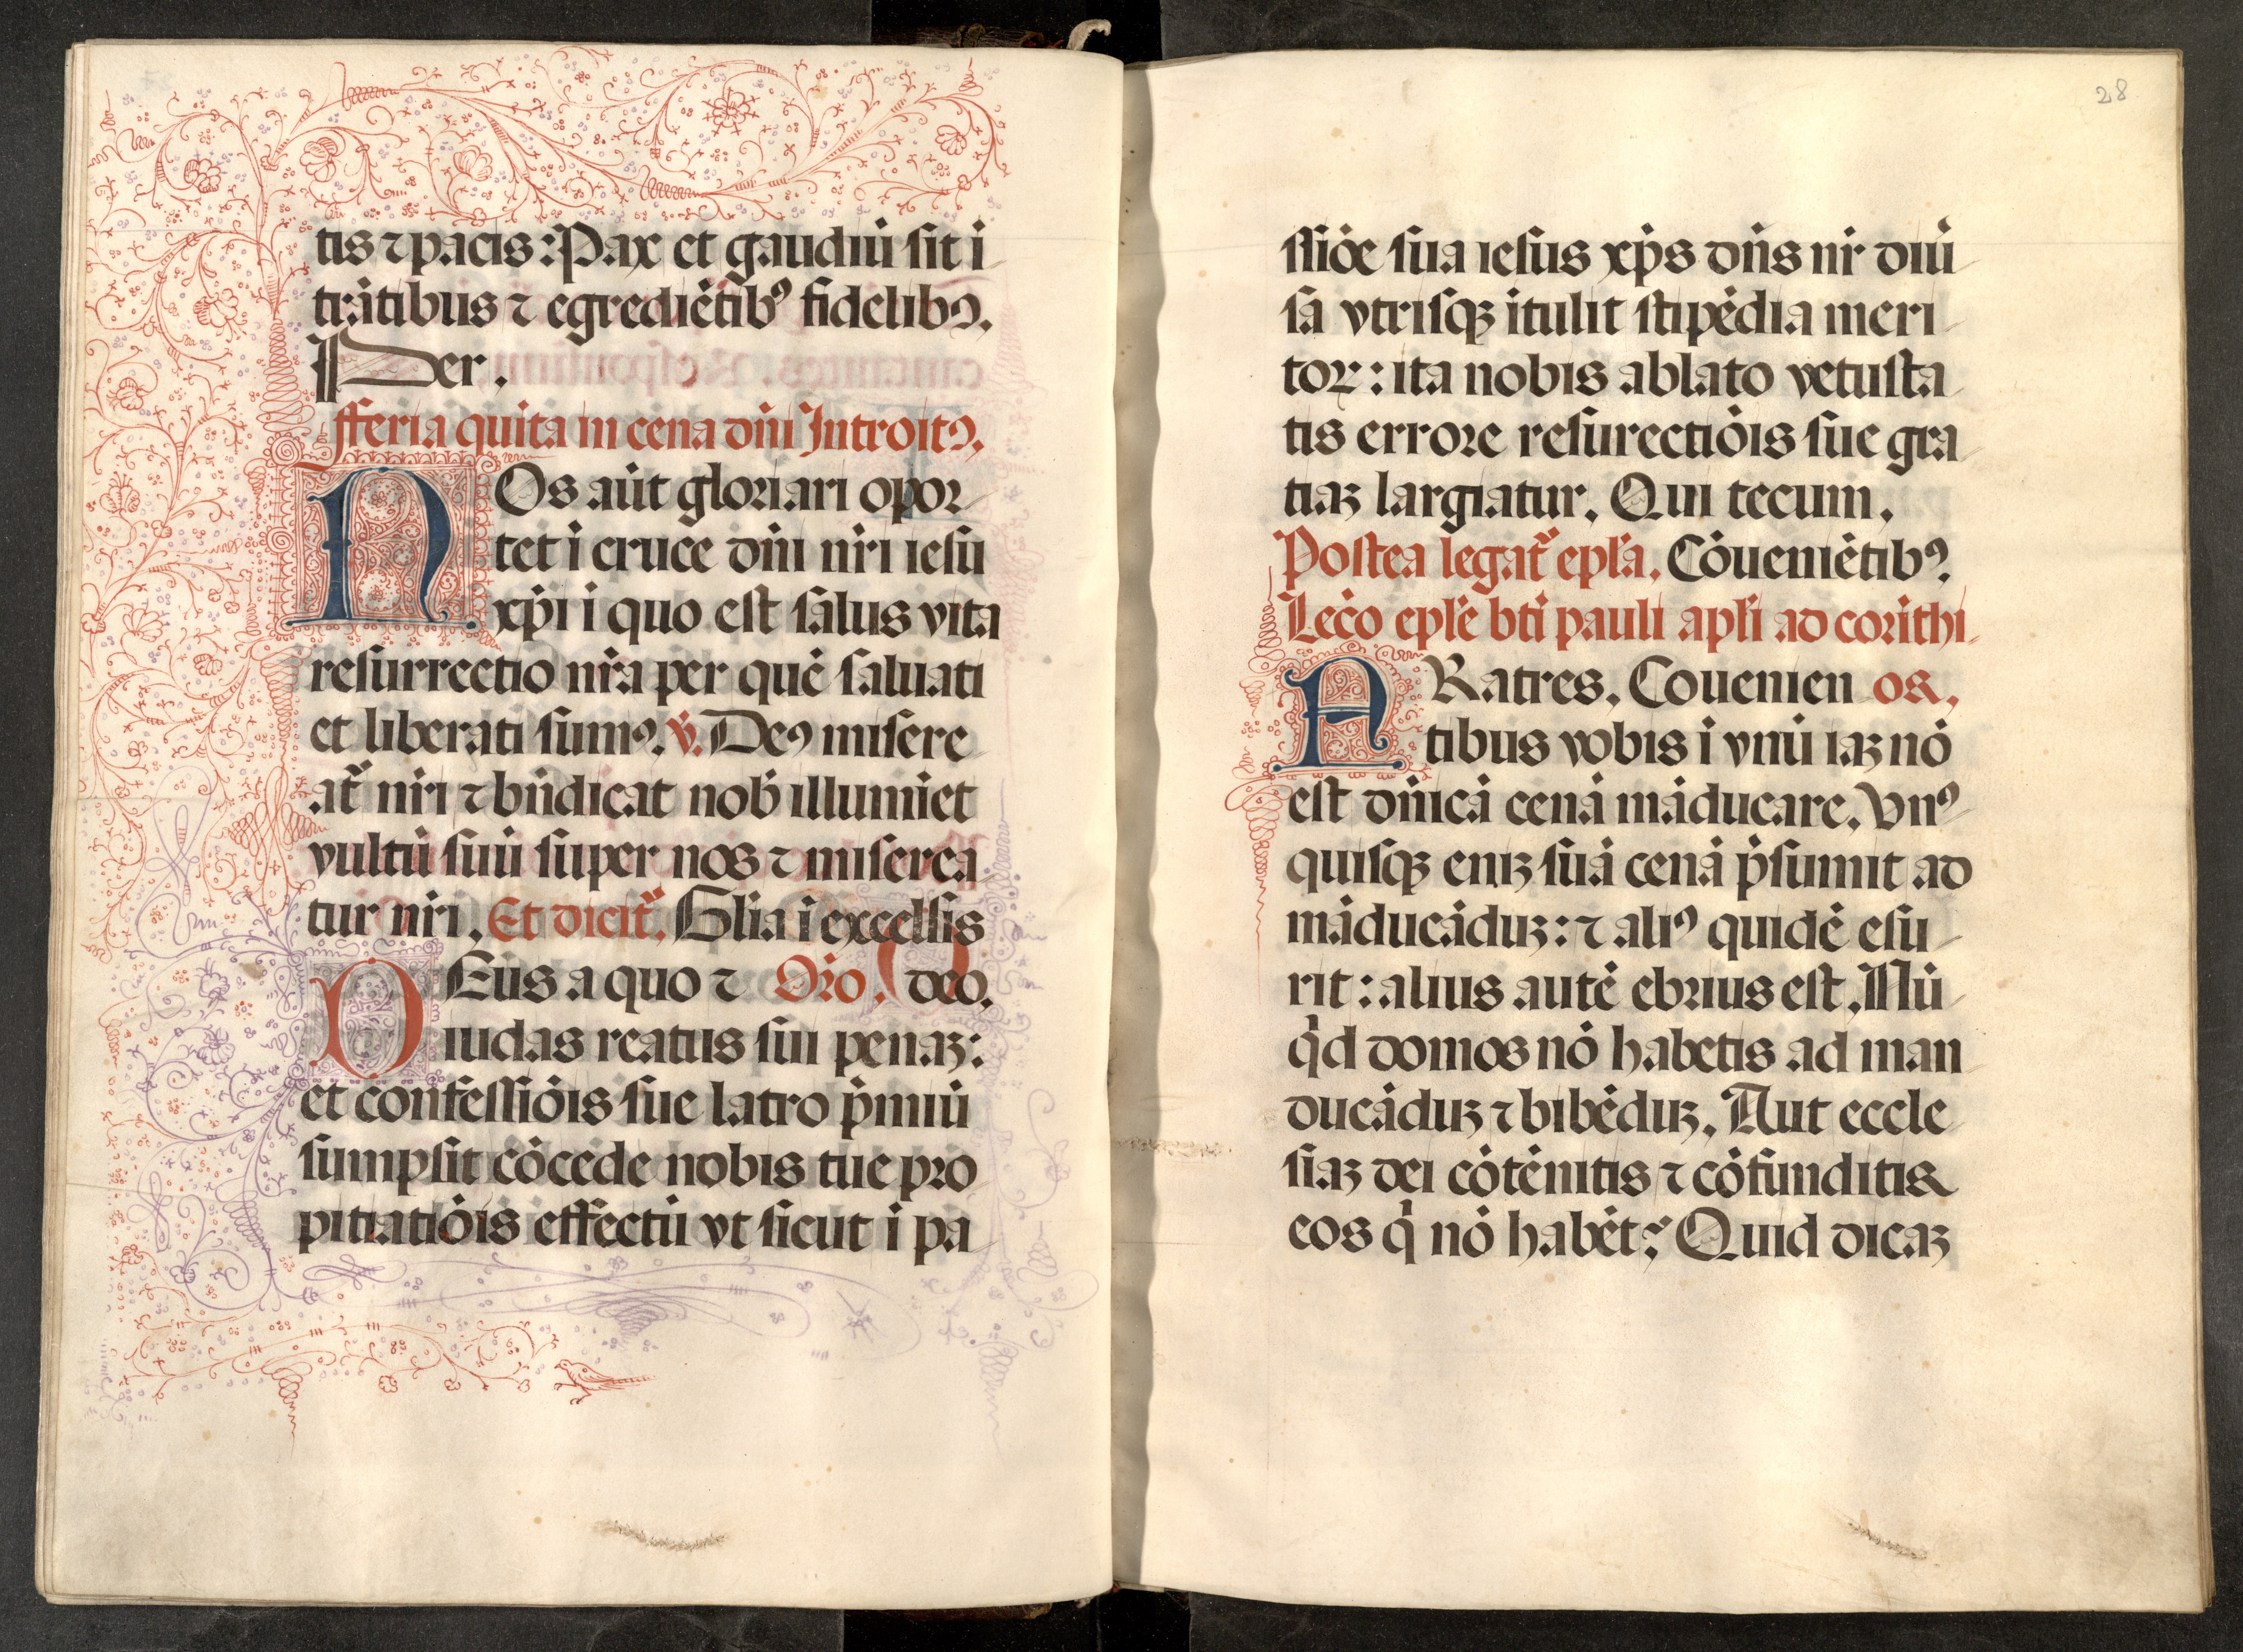 tis ⁊ pacis: Pax et gaudiū sit ī
trātibus ⁊ egrediētibꝰ fidelibꝰ.
Per.
fferia quīta in cena dn̄i Introitꝰ.
NOs aūt gloriari opor
tet ī cruce dn̄i nr̄i iesu
xp̄i ī quo est salus vita
resurrectio nr̄a per quē saluati
et liberati sumꝰ. v̄. Deꝰ misere
at̄ nr̄i ⁊ bn̄dicat nob̄ illumīet
vultū suū super nos ⁊ miserea
tur nr̄i. Et dicit̄. Glīa ī excelsis
DEus a quo ⁊ Or̄o. deo.
iudas reatus sui penaꝫ:
et confessiōis sue latro p̄miū
sumpsit cōcede nobis tue pro
pitiatiōis effectū vt sicut ī pa
28
ssiōe sua iesus xp̄s dn̄s nr̄ diū
sa vtrisqꝫ ītulit stipēdia meri
toꝝ: ita nobis ablato vetusta
tis errore resurectiōis sue gra
tiaꝫ largiatur. Qui tecum.
Postea legat̄ epl̄a. Cōueniētibꝰ.
Lec̄o epl̄e bt̄i pauli apl̄i ad corīthi
FRatres. Conuenien os.
tibus vobis ī vnū iaꝫ nō
est dn̄icā cenā māducare. Vnꝰ
quisqꝫ eniꝫ suā cenā p̄sumit ad
māducāduꝫ: ⁊ aliꝰ quidē esu
rit: alius autē ebrius est. Nū
qd̄ domos nō habetis ad man
ducāduꝫ ⁊ bibēduꝫ. Aut eccle
siaꝫ dei cōtēnitis ⁊ cōfunditis
eos q̄ nō habēt? Quid dicaꝫ